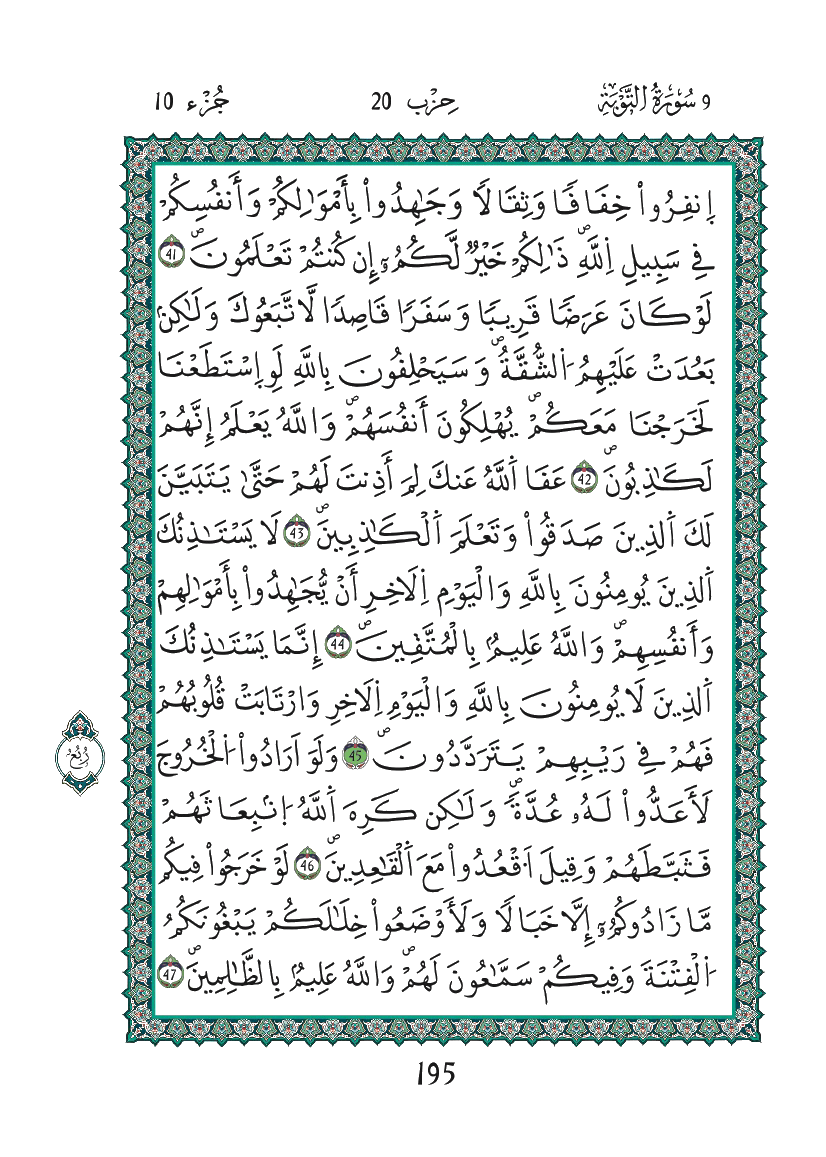 9 سُورَةُ التَّوْبَةِ حِزْب 20 جُزْء 10
اِ۪نفِرُواْ خِفَافٗا وَثِقَالٗا وَجَٰهِدُواْ بِأَمْوَٰلِكُمْ وَأَنفُسِكُمْ
فِے سَبِيلِ اِ۬للَّهِۖ ذَٰلِكُمْ خَيْرٞ لَّكُمُۥٓ إِن كُنتُمْ تَعْلَمُونَۖ 41
لَوْ كَانَ عَرَضٗا قَرِيبٗا وَسَفَرٗا قَاصِدٗا لَّاتَّبَعُوكَ وَلَٰكِنۢ
بَعُدَتْ عَلَيْهِمُ اُ۬لشُّقَّةُۖ وَسَيَحْلِفُونَ بِاللَّهِ لَوِ اِ۪سْتَطَعْنَا
لَخَرَجْنَا مَعَكُمْۖ يُهْلِكُونَ أَنفُسَهُمْۖ وَاللَّهُ يَعْلَمُ إِنَّهُمْ
لَكَٰذِبُونَۖ 42 عَفَا اَ۬للَّهُ عَنكَ لِمَ أَذِنتَ لَهُمْ حَتَّىٰ يَتَبَيَّنَ
لَكَ اَ۬لذِينَ صَدَقُواْ وَتَعْلَمَ اَ۬لْكَٰذِبِينَۖ 43 لَا يَسْتَٰذِنُكَ
اَ۬لذِينَ يُومِنُونَ بِاللَّهِ وَالْيَوْمِ اِ۬لَاخِرِ أَنْ يُّجَٰهِدُواْ بِأَمْوَٰلِهِمْ
وَأَنفُسِهِمْۖ وَاللَّهُ عَلِيمُۢ بِالْمُتَّقِينَۖ 44 إِنَّمَا يَسْتَٰذِنُكَ
اَ۬لذِينَ لَا يُومِنُونَ بِاللَّهِ وَالْيَوْمِ اِ۬لَاخِرِ وَارْتَابَتْ قُلُوبُهُمْ
فَهُمْ فِے رَيْبِهِمْ يَتَرَدَّدُونَۖ 45 وَلَوَ اَرَادُواْ اُ۬لْخُرُوجَ
رُبُع
لَأَعَدُّواْ لَهُۥ عُدَّةٗۖ وَلَٰكِن كَرِهَ اَ۬للَّهُ اُ۪نۢبِعَاثَهُمْ
فَثَبَّطَهُمْ وَقِيلَ اَ۟قْعُدُواْ مَعَ اَ۬لْقَٰعِدِينَۖ 46 لَوْ خَرَجُواْ فِيكُم
مَّا زَادُوكُمُۥٓ إِلَّا خَبَالٗا وَلَأَوْضَعُواْ خِلَٰلَكُمْ يَبْغُونَكُمُ
اُ۬لْفِتْنَةَ وَفِيكُمْ سَمَّٰعُونَ لَهُمْۖ وَاللَّهُ عَلِيمُۢ بِالظَّٰلِمِينَۖ 47
195